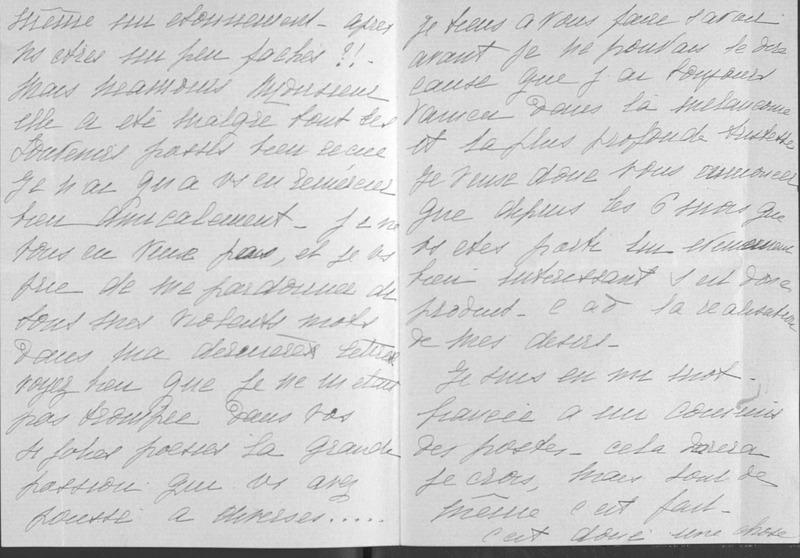 même un étonnement - après
ns etres un peu fachés ?! -
Mais neamoins Monsieur
elle a été malgré tout ses
souvenirs passés bien recue
Je n'ai qu'a vs en remercier
bien amicalement - Je ne
vous en veux pas, et je vs
prie de me pardonner de
tous mes violents mots
dans ma dernières lettre
voyez bon que je ne m'etais
pas trompée dans vos
si jolies poesies la grande
passion que vs avez
poussé a diverses.....
Je tiens a vous faire savoir
avant je ne pouvais le dire
cause que j'ai toujours
dans la melancolie
et la plus profonde tristesse
Je veux donc vous annoncer
que depuis les 6 mois que
vs etes parti un evenement
bien intéressant s'est donc
produit - c a d la realisation
de mes desirs -
Je suis en un mot -
fiancée a un commis
des postes - cela
je crois, mais tout de
même c'est fait -
c'est donc une chose